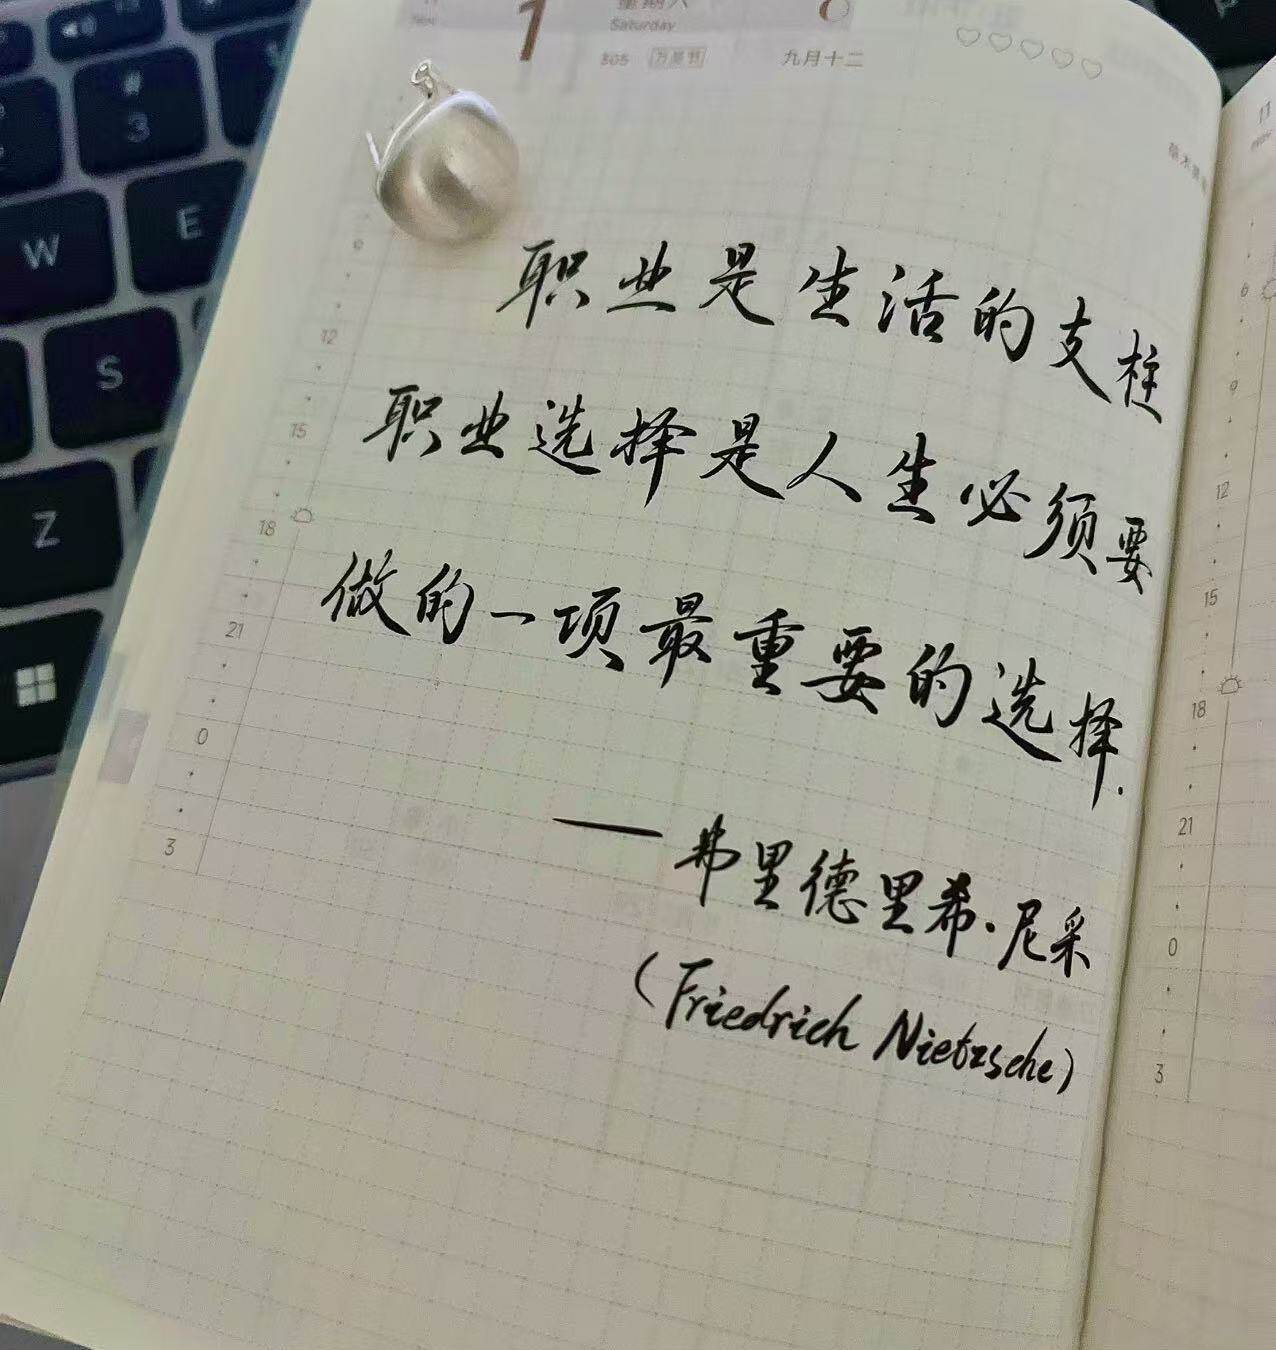 1
星期六
Saturday
305 万圣节
九月十二
职业是生活的支柱
职业选择是人生必须要
做的一项最重要的选择.
——弗里德里希·尼采
(Friedrich Nietzsche)
9
12
15
18
21
0
3
11
6
9
12
15
18
21
0
3
#
3
W
E
S
Z